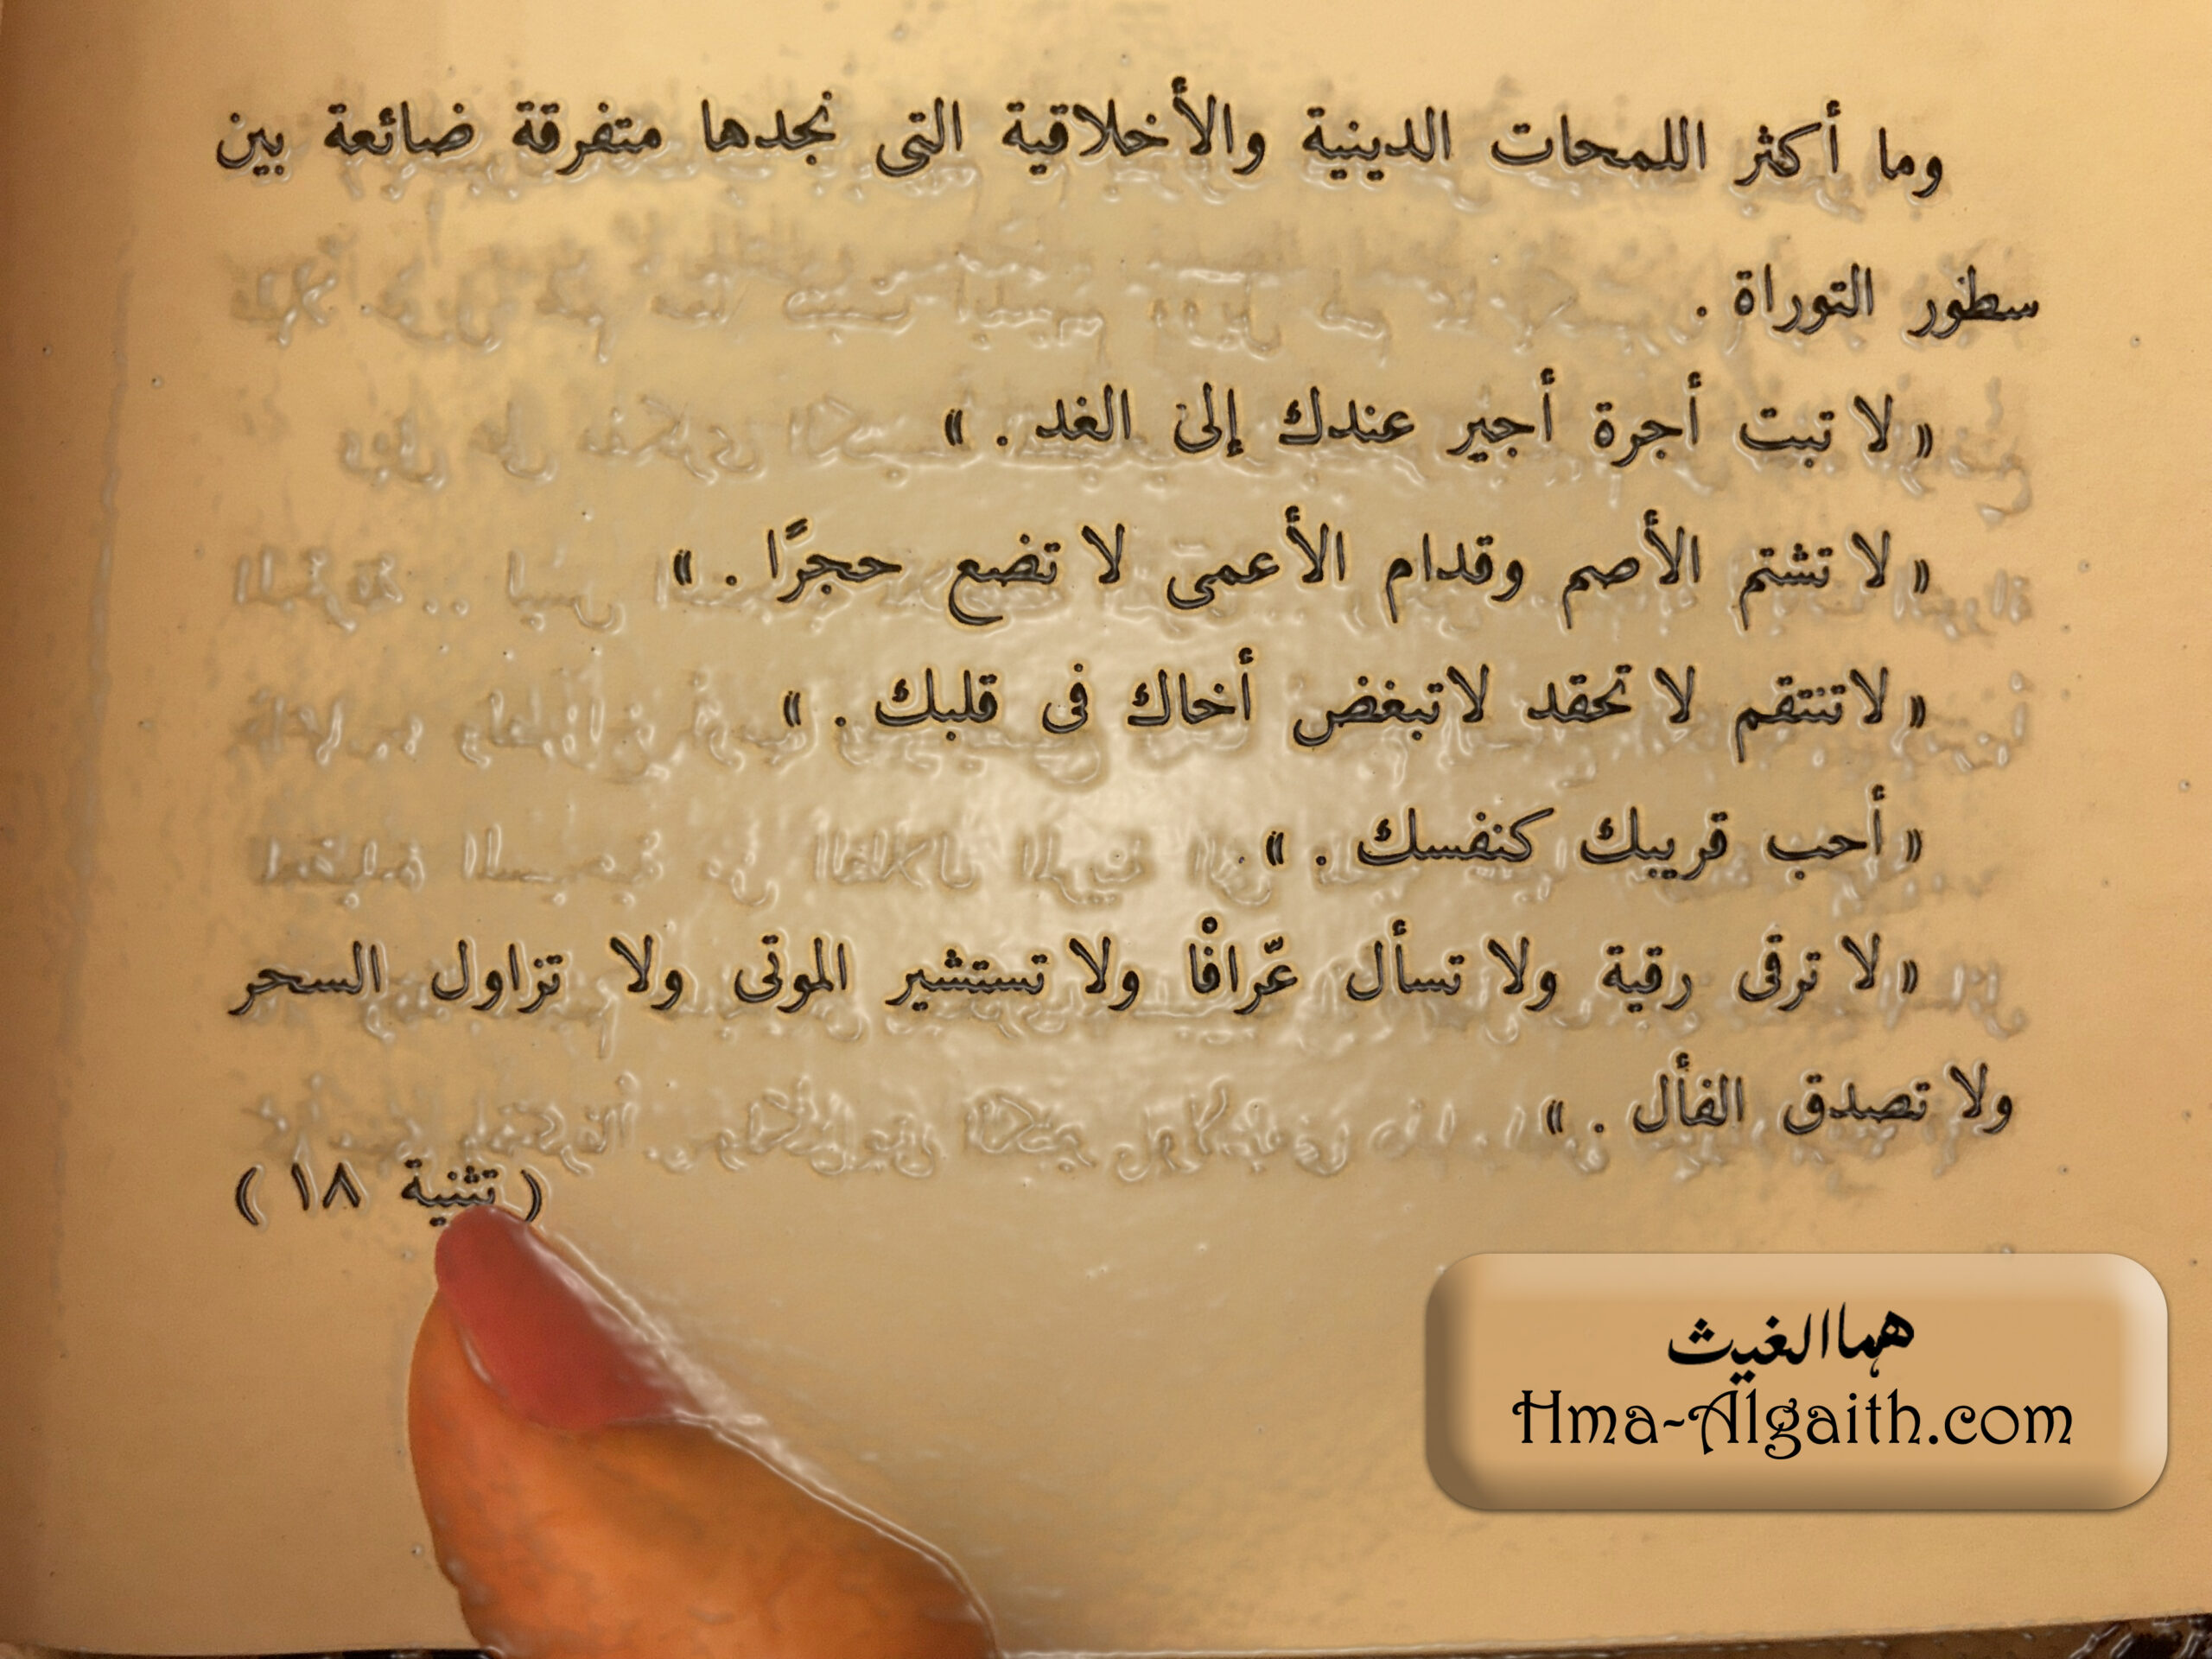 وما أكثر اللمحات الدينية والأخلاقية التى نجدها متفرقة ضائعة بين
سطور التوراة .
« لا تبت أجرة أجير عندك إلى الغد . »
« لا تشتم الأصم وقدام الأعمى لا تضع حجرًا . »
« لا تنتقم لا تحقد لا تبغض أخاك فى قلبك . »
« أحب قريبك كنفسك . » .
« لا ترقى رقية ولا تسأل عّرافْا ولا تستشير الموتى ولا تزاول السحر
ولا تصدق الفأل . »
( تثنية ١٨ )
هما الغيث
Hma-Algaith.com